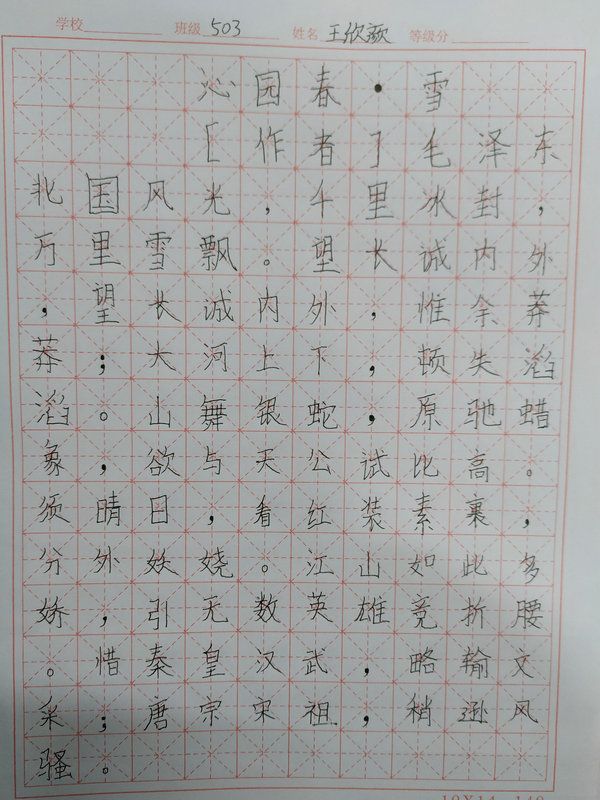 学校 班级 503 姓名 王欣颜 等级分
沁园春·雪
[作者]毛泽东
北国风光，千里冰封，
万里雪飘。望长诚内外
，望长诚内外，惟余莽
莽；大河上下，顿失滔
滔。山舞银蛇，原驰蜡
象，欲与天公试比高。
须晴日，看红装素裹，
分外妖娆。江山如此多
娇，引无数英雄竞折腰
。惜秦皇汉武，略输文
采；唐宗宋祖，稍逊风
骚。